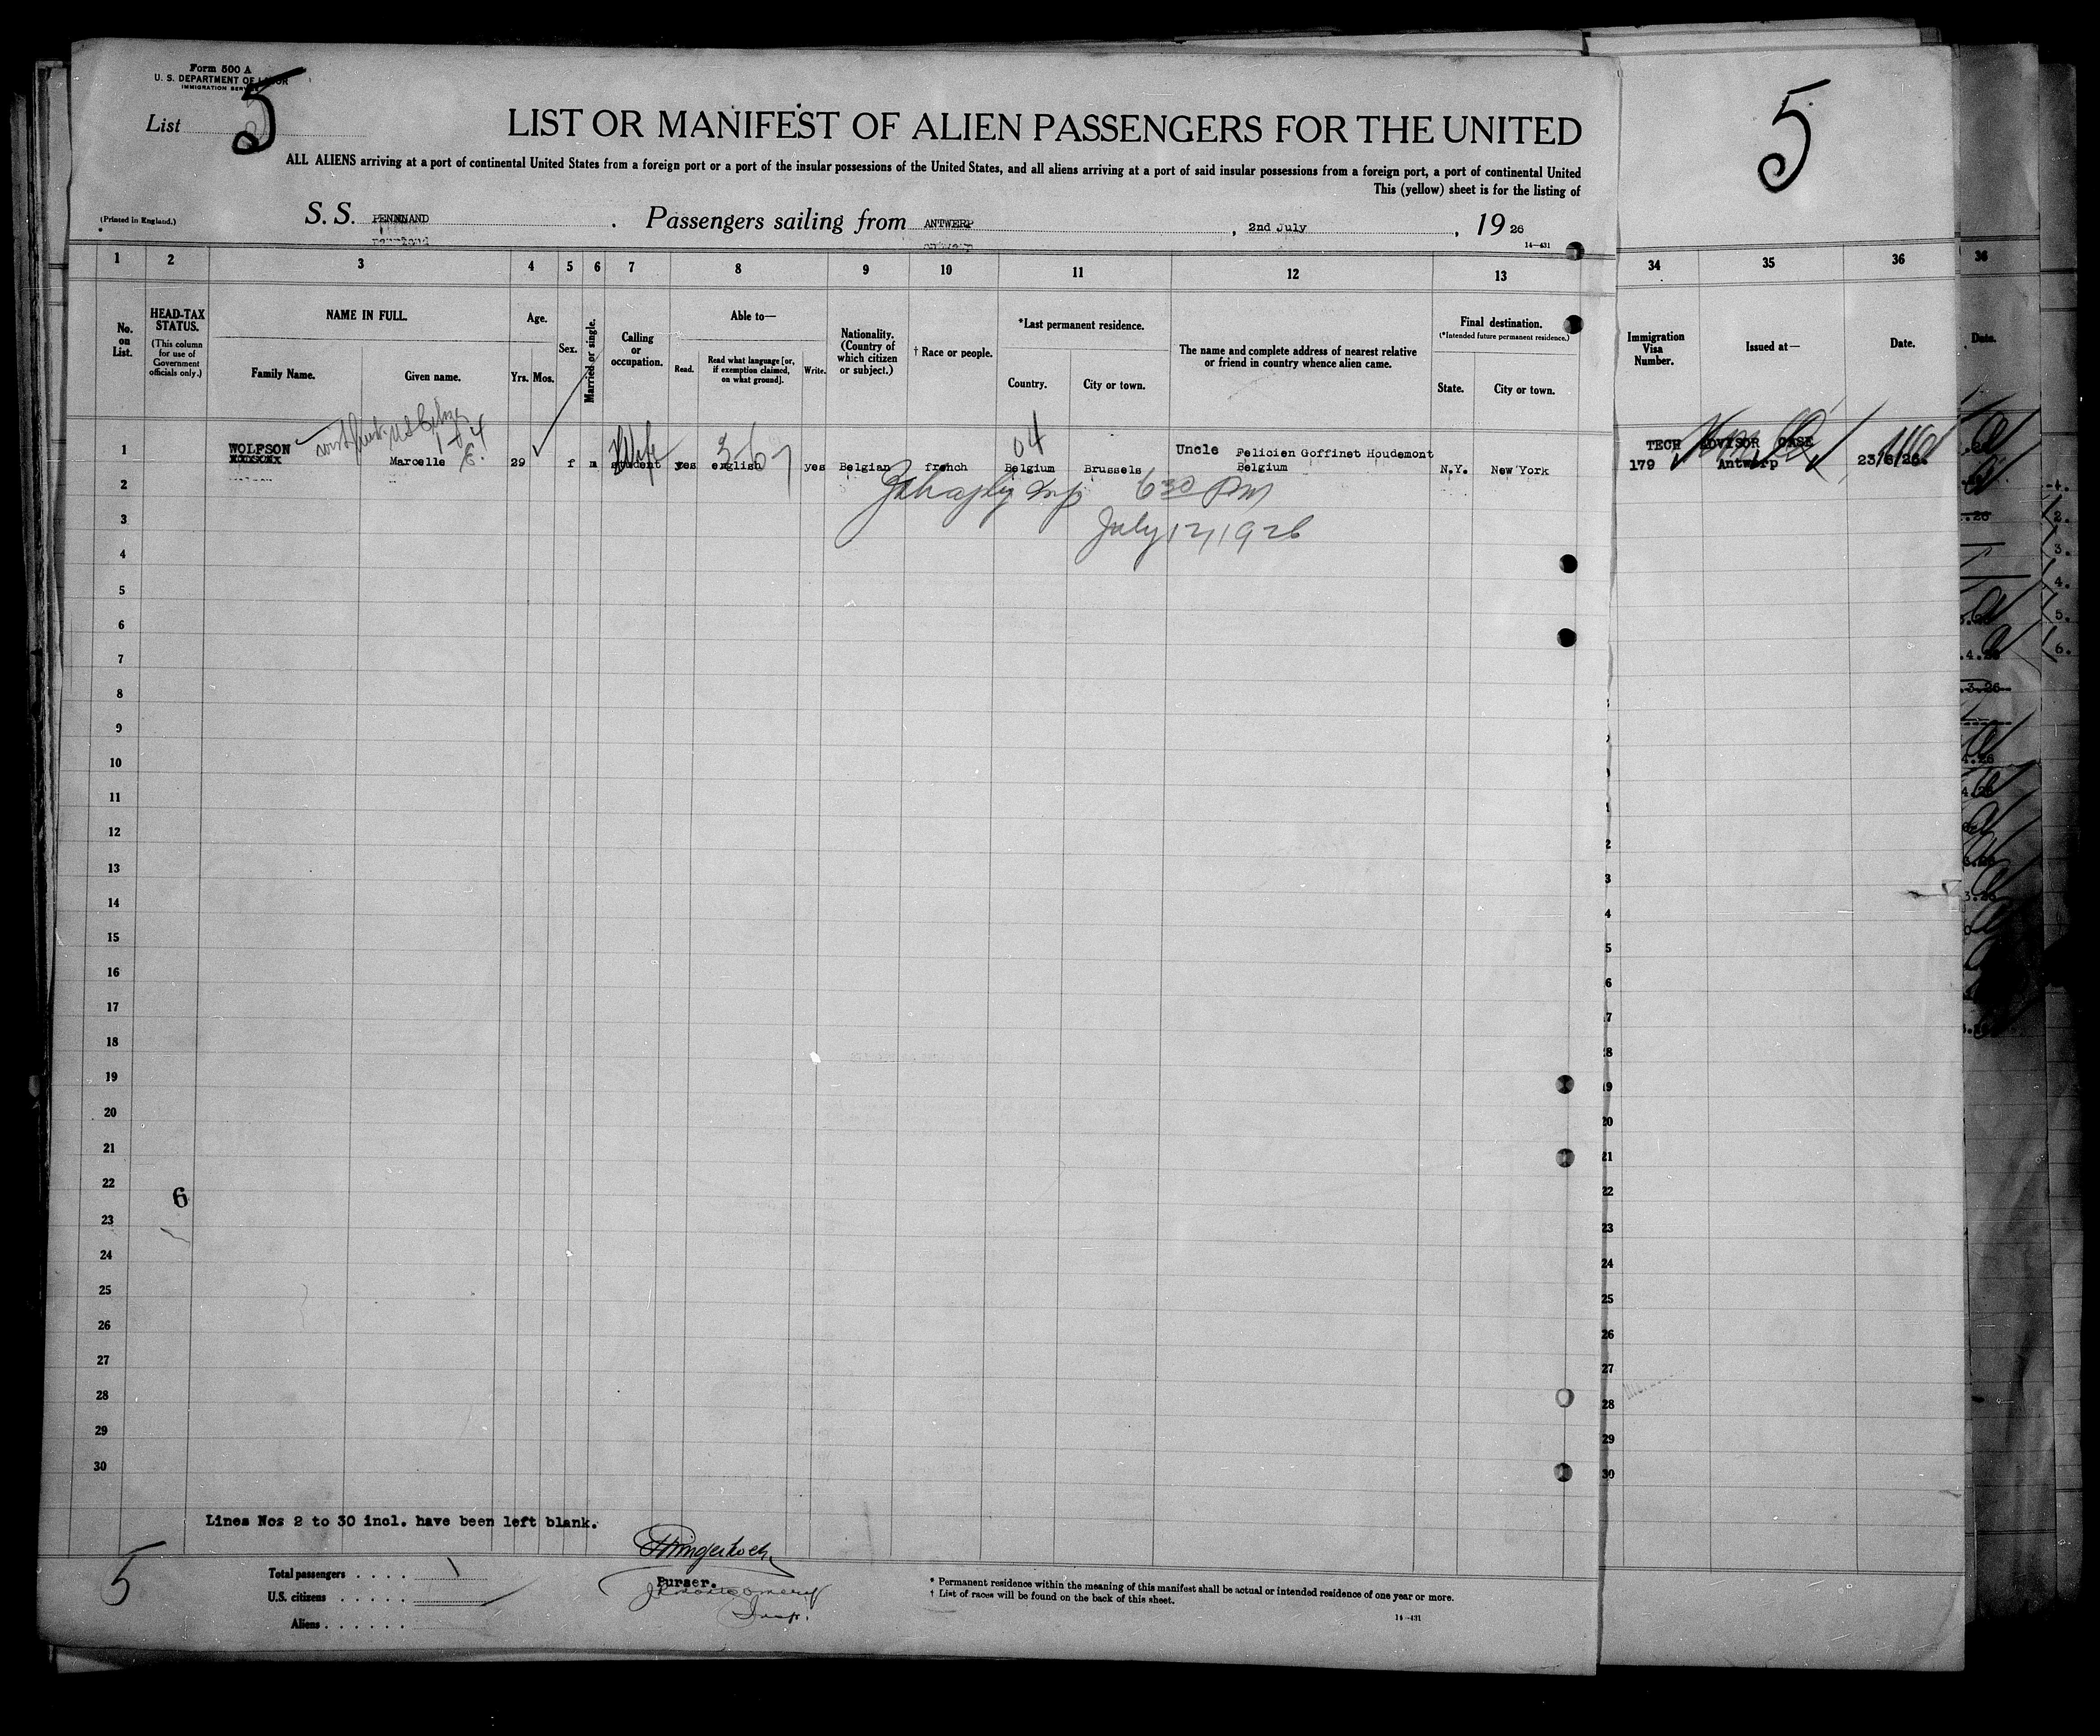 Form 500 A
U. S. DEPARTMENT OF LABOR
IMMIGRATION SERVICE
List 5
LIST OR MANIFEST OF ALIEN PASSENGERS FOR THE UNITED
ALL ALIENS arriving at a port of continental United States from a foreign port or a port of the insular possessions of the United States, and all aliens arriving at a port of said insular possessions from a foreign port, a port of continental United
This (yellow) sheet is for the listing of
(Printed in England.)
S. S. PENNLAND . Passengers sailing from ANTWERP , 2nd July , 19 26
14—431
1 2 3 4 5 6 7 8 9 10 11 12 13
No. on List.
HEAD-TAX STATUS.
(This column for use of Government officials only.)
NAME IN FULL.
Family Name. Given name.
Age.
Yrs. Mos.
Sex.
Married or single.
Calling or occupation.
Able to—
Read. Read what language [or, if exemption claimed, on what ground]. Write.
Nationality. (Country of which citizen or subject.)
† Race or people.
*Last permanent residence.
Country. City or town.
The name and complete address of nearest relative or friend in country whence alien came.
Final destination.
(*Intended future permanent residence.)
State. City or town.
1 WOLFSON Marcelle E. 29 f m student Wife yes english yes Belgian french Belgium Brussels Uncle Felicien Goffinet Houdemont Belgium N.Y. New York
04
2
6 30 PM
3
July 12, 1926
4
5
6
7
8
9
10
11
12
13
14
15
16
17
18
19
20
21
22
6
23
24
25
26
27
28
29
30
Lines Nos 2 to 30 incl. have been left blank.
5
Total passengers . . . .
U.S. citizens . . . . .
Aliens . . . . . .
Purser.
* Permanent residence within the meaning of this manifest shall be actual or intended residence of one year or more.
† List of races will be found on the back of this sheet.
14—431
5
34 35 36
Immigration Visa Number.
Issued at—
Date.
TECH ADVISOR CASE
179 Antwerp 23/6/26.
36
Date.